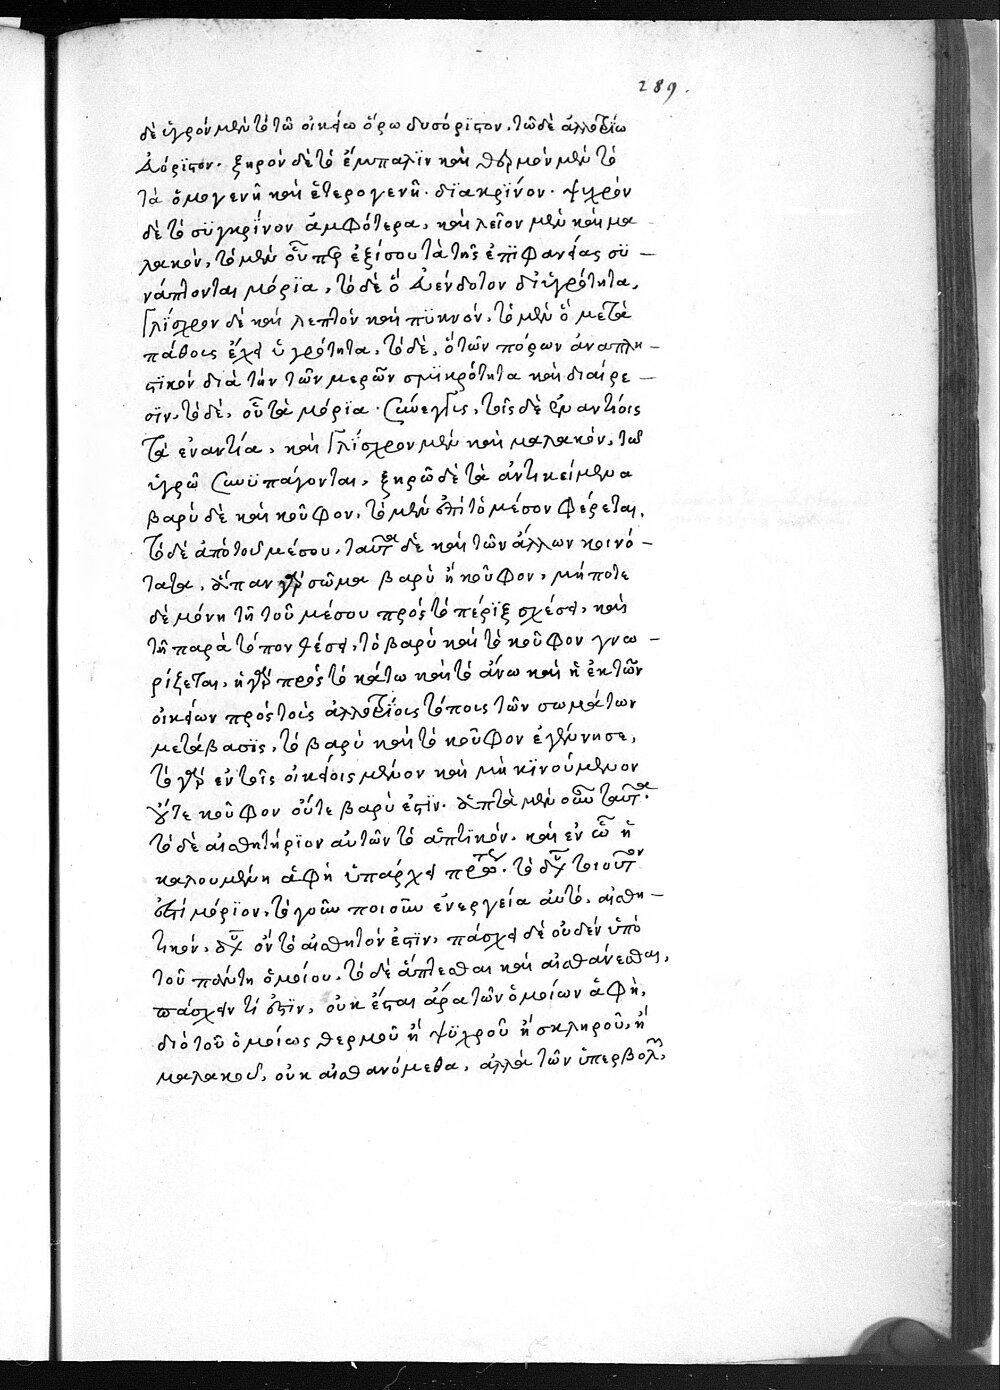 289.
δὲ ὑγρὸν μὲν τὸ τῶ οἰκείω ὅρω δυσόριστον, τῶ δὲ ἀλλοτρίω
ἀόριστον. ξηρὸν δὲ τὸ ἔμπαλϊν καὶ θερμὸν μὲν τὸ
τὰ ὁμογενῆ καὶ ἑτερογενῆ. διακρῖνον. ψυχρὸν
δὲ τὸ συγκρῖνον ἀμφότερα, καὶ λεῖον μὲν καὶ μα
λακὸν, τὸ μὲν οὗπερ ἐξίσου τὰ τῆς ἐπιφανείας συ –
νάπτονται μόρϊα, τὸ δὲ ὃ ἀένδοτον δι' ὑγρότητα,
γλίσχρον δὲ καὶ λεπτὸν καὶ πϋκνὸν, τὸ μὲν ὃ μετὰ
πάθους ἔχει ὑγρότητα, τὸ δὲ, ὃ τῶν πόρων ἀναπλη –
στϊκὸν διὰ τὴν τῶν μερῶν σμϊκρότητα καὶ διαίρε –
σϊν, τὸ δὲ, οὗ τὰ μόρϊα συνεγγὺς, τοῖς δὲ ἐναντίοις
τὰ ἐναντία, καὶ γλίσχρον μὲν καὶ μαλακὸν, τῶ
ὑγρῶ συνϋπάγονται, ξηρῶ δὲ τὰ ἀντικείμενα
βαρὺ δὲ καὶ κοῦφον, τὸ μὲν ἐπὶ τὸ μέσον φέρεται,
τὸ δὲ ἀπὸ τοῦ μέσου, ταῦτα δὲ καὶ τῶν ἄλλων κοινό –
τατα, ἅπαν γὰρ σῶμα βαρὺ ἢ κοῦφον, μήποτε
δὲ μόνη τῆ τοῦ μέσου πρὸς τὸ πέρϊξ σχέσει, καὶ
τῆ παρὰ τόπον θέσει, τὸ βαρὺ καὶ τὸ κοῦφον γνω –
ρίζεται, ἡ γὰρ πρὸς τὸ κάτω καὶ τὸ ἄνω καὶ ἡ ἐκ τῶν
οἰκείων πρὸς τοῖς ἀλλοτρίοις τόποις τῶν σωμάτων
μετάβασϊς, τὸ βαρὺ καὶ τὸ κοῦφον ἐγέννησε,
τὸ γὰρ ἐν τοῖς οἰκείοις μένον καὶ μὴ κϊνούμενον
οὔτε κοῦφον οὔτε βαρὺ ἐστϊν. ἁπτὰ μὲν οὖν ταῦτα.
τὸ δὲ αἰσθητήριον αὐτῶν τὸ ἁπτϊκὸν. καὶ ἐν ὧ ἡ
καλουμένη ἁφὴ ὑπάρχει πρώτω. τὸ δυνάμει τοιοῦτον
ἐστὶ μόρϊον, τὸ γοῦν ποιοῦν ἐνεργεία αὐτὸ, αἰσθη –
τικὸν, δυνάμει ὂν τὸ αἰσθητόν ἐστϊν, πάσχει δὲ οὐδὲν ὑπὸ
τοῦ πάντη ὁμοίου. τὸ δὲ ἅπτεσθαι καὶ αἰσθάνεσθαι,
πάσχειν τί ἐστϊν, οὐκ ἔσται ἄρα τῶν ὁμοίων ἁφὴ,
διὸ τοῦ ὁμοίως θερμοῦ ἢ ψϋχροῦ ἢ σκληροῦ, ἢ
μαλακοῦ, οὐκ αἰσθανόμεθα, ἀλλὰ τῶν ὑπερβολῶν,